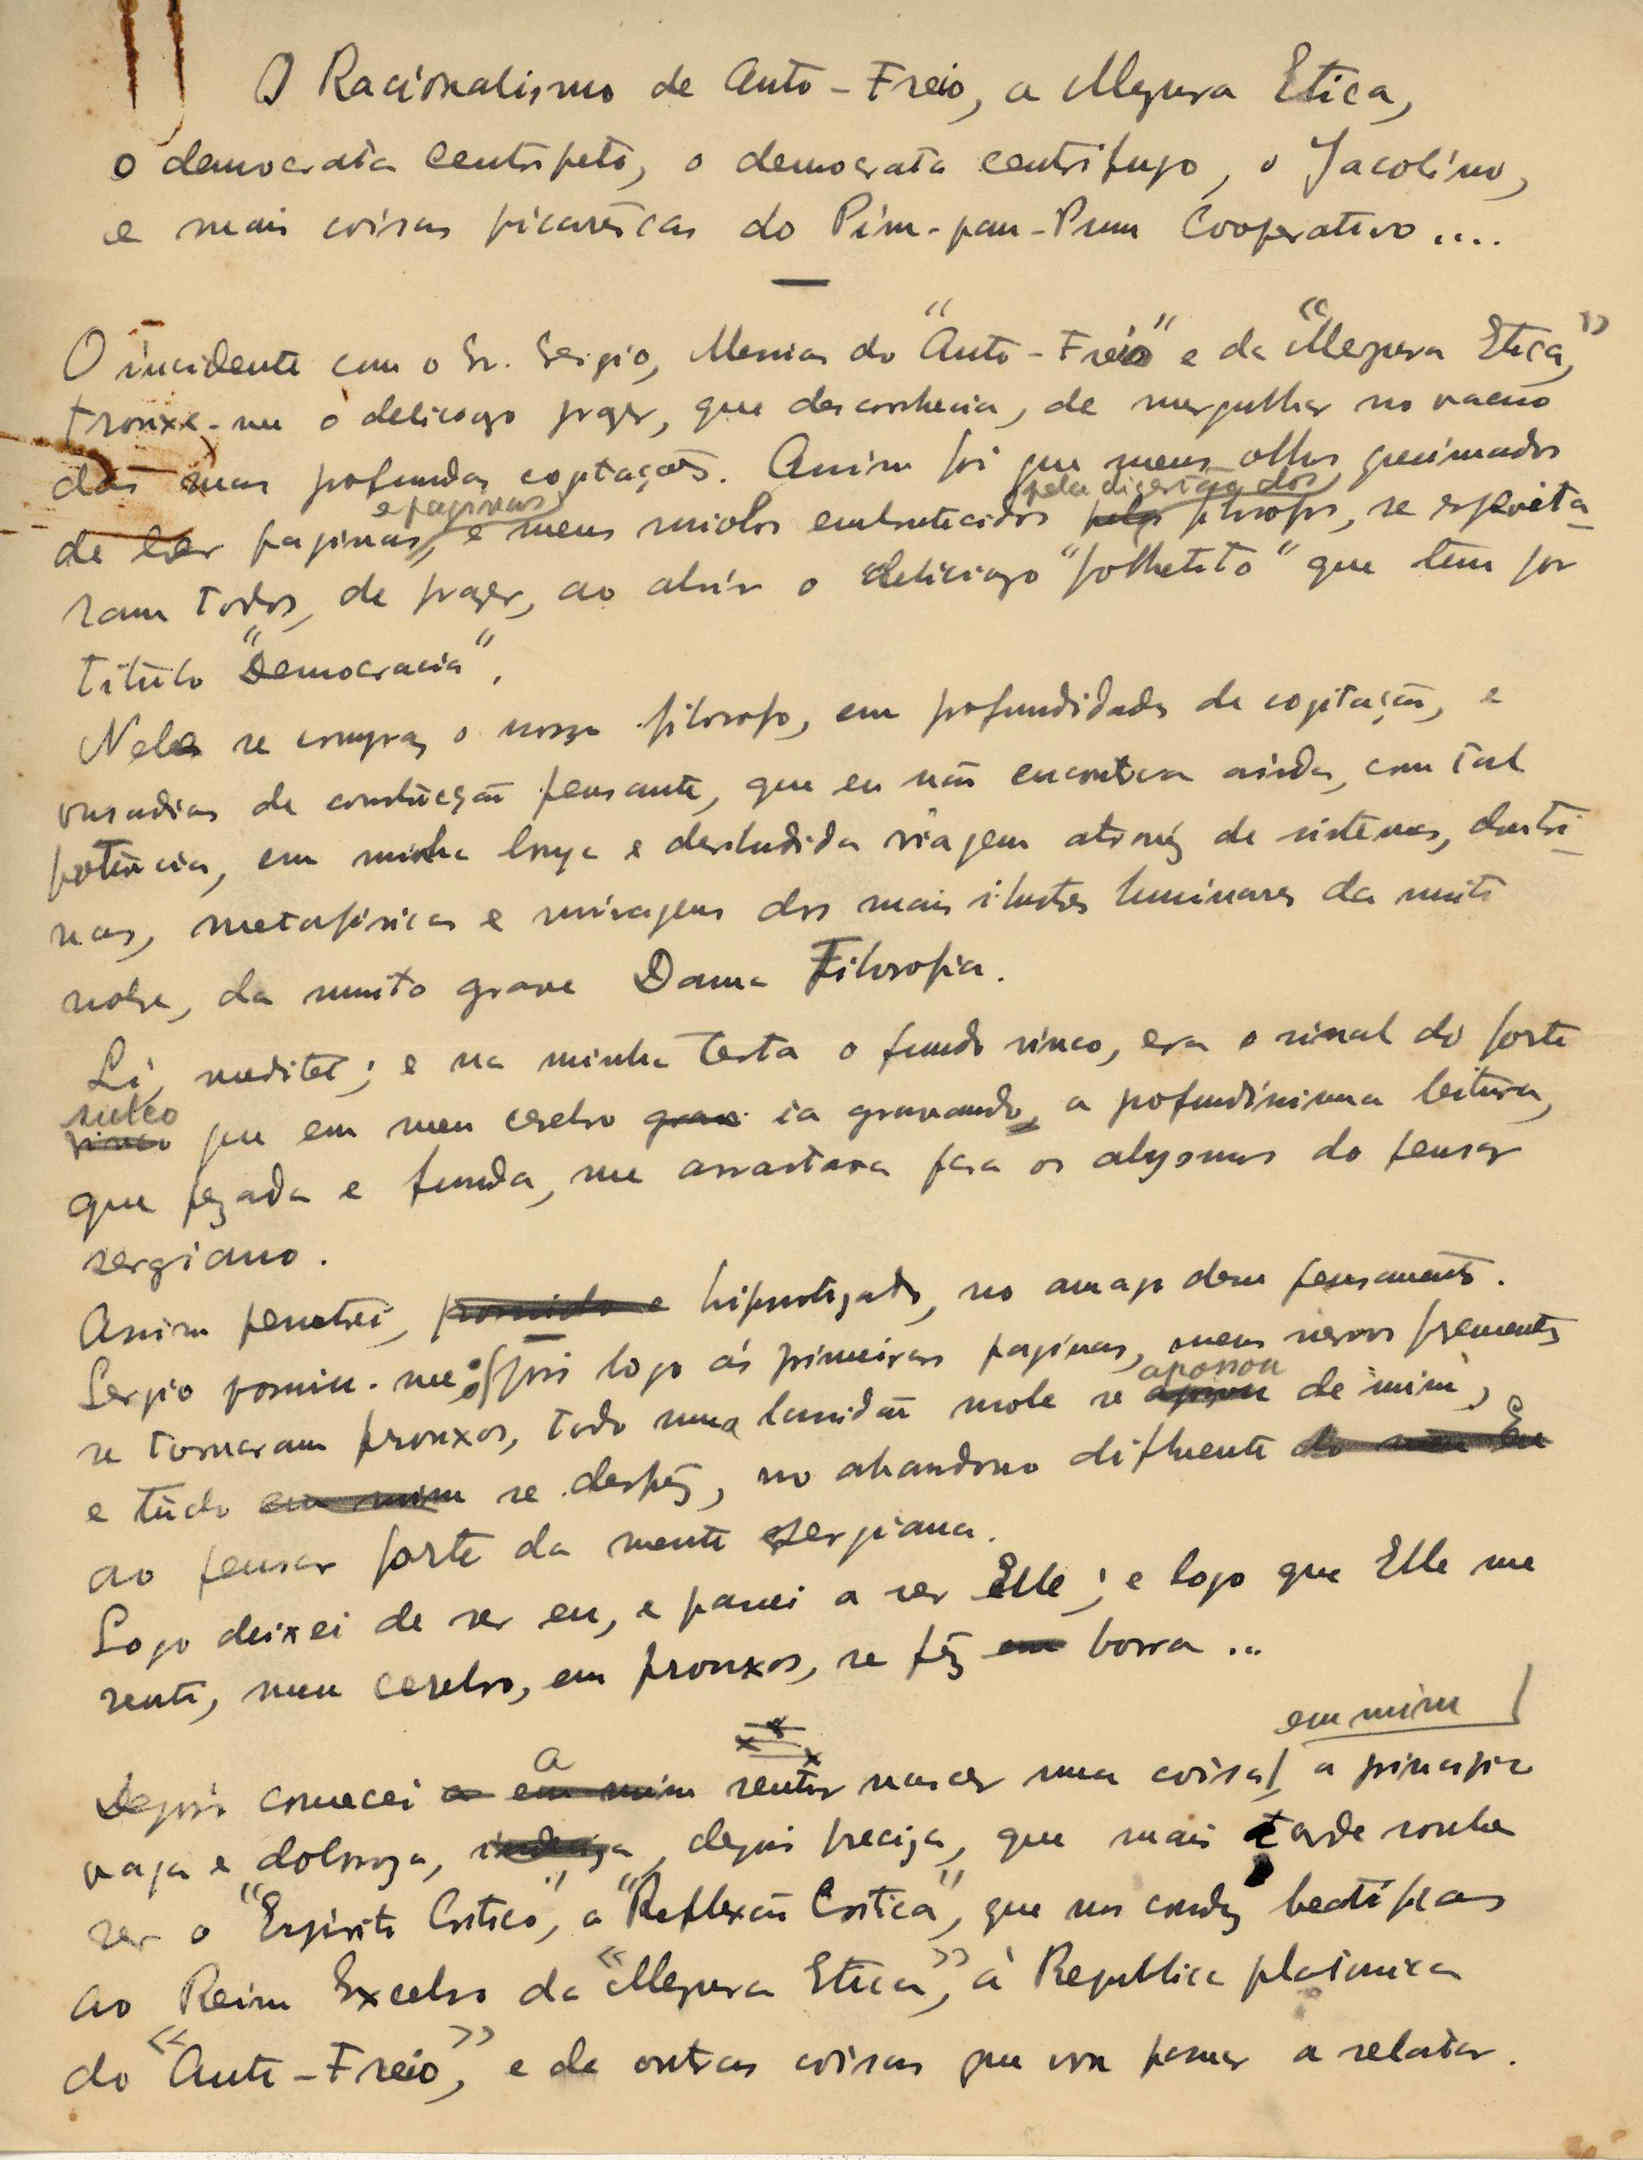 O Racionalismo de Auto-Freio, a Megera Etica,
o democrata centripeto, o democrata centrifugo, o Jacobino,
e mais coisas picarêscas do Pim-pan-Pum Cooperativo....
O incidente com o Sr. Sergio, Messias do "Auto-Freio" e da "Megera Etica,"
trouxe-me o delicioso prazer, que desconhecia, de mergulhar no vacuo
das suas profundas cogitações. Assim foi que meus olhos queimados
e paginas pela digestão dos
de ler paginas, e meus miolos embrutecidos pelos filosofos, se espevita-
ram todos, de prazer, ao abrir o delicioso "folhetito" que tem por
titulo "Democracia".
Nele se compraz o nosso filosofo, em profundidades de cogitação, e
ousadias de construcção pensante, que eu não encontrara ainda, com tal
potencia, em minha longa e desiludida viagem atravez de sistemas, doutri-
nas, metafisicas e miragens dos mais ilustres luminares da muito
nobre, da muito grave Dama Filosofia.
Li, meditei; e na minha testa o fundo vinco, era o sinal do forte
sulco
vinco que em meu cerebro grav ia gravando, a profundissima leitura,
que pezada e funda, me arrastava para os abysmos do pensar
sergiano.
Assim penetrei, hipnotizado, no amago desse pensamento.
Sergio possuiu-me; pois logo ás primeiras paginas, meus nervos frementes
apossou
se tornaram frouxos, toda uma lassidão mole se de mim,
e tudo em mim se desfez, no abandono difluente do meu Eu
ao pensar forte da mente sergiana.
Logo deixei de ser eu, e passei a ser Elle; e logo que Elle me
senti, meu cerebro, em frouxos, se fez em borra...
em mim
a
Depois comecei a em mim sentir nascer uma coisa, a principio
vaga e dolorosa, depois preciza, que mais tarde soube
ser o "Espirito Critico", a "Reflexão Critica", que nos conduz beatificas
ao Reino Excelso da "Megera Etica", á Republica platonica
do "Auto-Freio", e de outras coisas que vou passar a relatar.